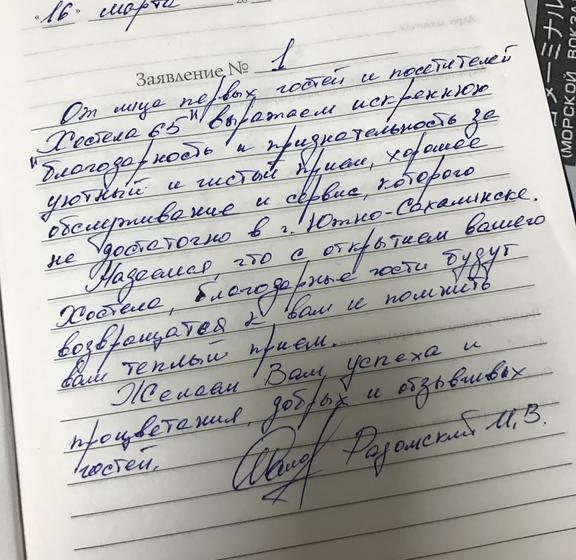 "16" марта
Заявление № 1
От лица первых гостей и посетителей
"Хостела 65" выражаем искреннюю
благодарность и признательность за
уютный и чистый прием, хорошее
обслуживание и сервис, которого
не достаточно в г. Южно-Сахалинске.
Надеемся, что с открытием вашего
Хостела, благодарные гости будут
возвращатся к вам и помнить
вам теплый прием.
Желаем Вам успеха и
процветания, добрых и отзывывых
гостей.
Радомский И.В.
ターミナル
(МОРСКОЙ ВОКЗА